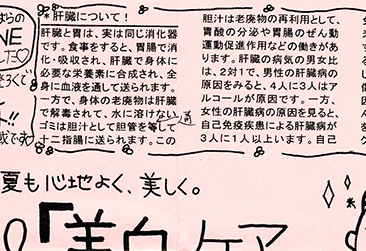 はらの
NE
した♡
整ろくで
ト!!
感でネ
*肝臓について!
肝臓と胃は、実は同じ消化器
です。食事をすると、胃腸で消
化・吸収され、肝臓で身体に
必要な栄養素に合成され、全
身に血液を通して送られます。
一方で、身体の老廃物は肝臓
で解毒されて、水に溶けない
ゴミは胆汁として胆管を通して
十二指腸に送られます。この
胆汁は老廃物の再利用として、
胃酸の分泌や胃腸のぜん動
運動促進作用などの働きがあ
ります。肝臓の病気の男女比
は、2対1で、男性の肝臓病の
原因をみると、4人に3人はア
ルコールが原因です。一方、
女性の肝臓病の原因を見ると、
自己免疫疾患による肝臓病が
3人に1人以上います。自己
夏も心地よく、美しく。
「美白」ケア